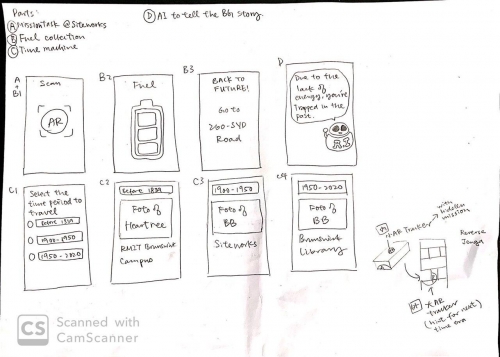 Parts:
Ⓐ Mission talk @Siteworks
Ⓑ Fuel collection
Ⓒ Time machine
Ⓓ AI to tell the BB1 story
A
+
B1
Scan
AR
B2
Fuel
B3
BACK TO
FUTURE!
Go to
260-SYD
Road
D
Due to the
lack of
energy, you're
trapped in the
past.
AI
C1
Select the
time period to
travel
Before 1839
1900-1950
1950-2020
C2
Before 1839
Foto of
Heartree
RMIT Brunswick
Campus
C3
1900-1950
Foto of
BB
Siteworks
C4
1950-2020
Foto of
BB
Brunswick
Library
AR Tracker
with
hidden
mission
Reverse
Jenga
AR
tracker
(hint for next)
time era
CS Scanned with
CamScanner